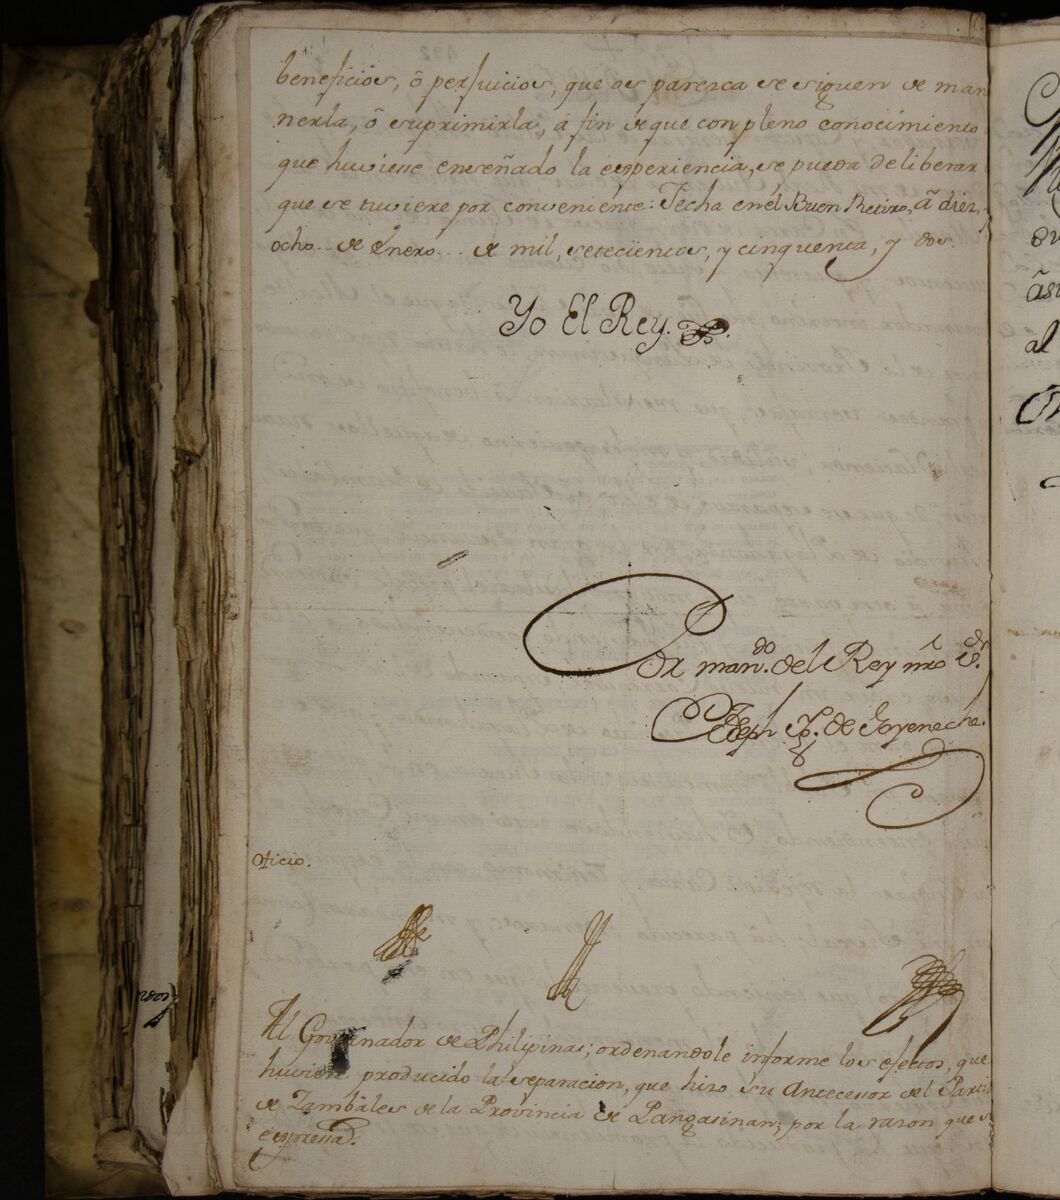 beneficios, ô perjuicios, que os paresca se siguen de man
nerla, ô suprimirla, â fin de que con pleno conocimiento
que huviese enseñado la experiencia, se pueda deliberar
que se tuviere por conveniente: Fecha en el Buen Retiro, â diez,
ocho.. de Enero... de mil, setecientos, y cinquenta, y dos.
Yo El Rey.
Por man.do del Rey nr̃o S.or
Joseph Ig. de Goyeneche.
Oficio.
Al Governador de Philipinas; ordenandole informe los efectos, que
huvien producido la separacion, que hizo su Antecesor del Parti
de Zambâles de la Provincia de Pangasinan; por la razon que s
expresa.
ôn
âsi
al